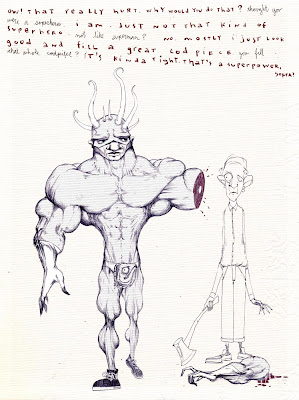 ow! that really hurt. why would you do that? thought you
were a superhero. i am. just not that kind of
superhero. not like superman? no. mostly i just look
good and fill a great codpiece. you fill
that whole codpiece? it's kinda tight. that's a superpower,